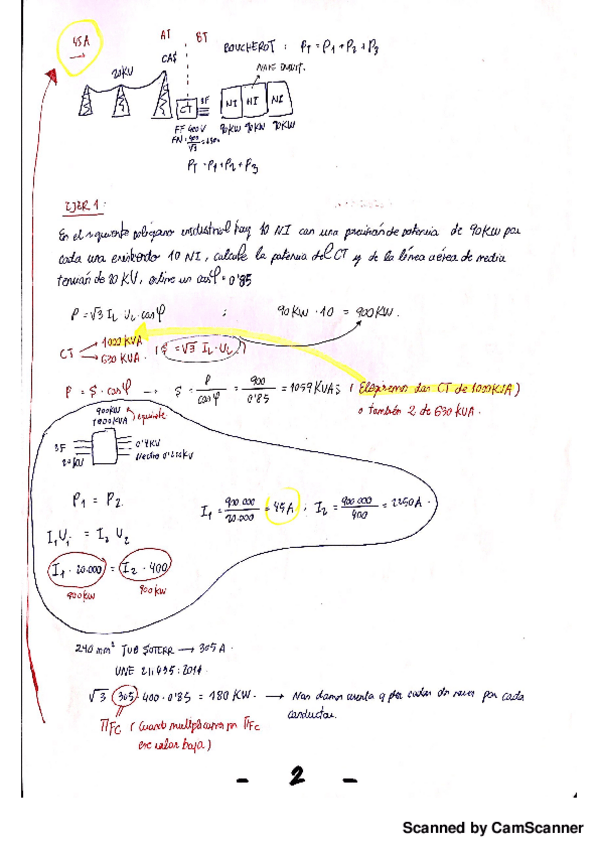 45A
AT BT
BOUCHEROT : PT = P1 + P2 + P3
CAS
20KV
NAVE INDUST.
CT 3F NI NI NI
FF 400V 90KW 90KW 90KW
FN: 400/√3 = 230
PT = P1 + P2 + P3
EJER 1:
En el siguiente polígono industrial hay 10 NI con una previsión de potencia de 90KW por
cada una existiendo 10 NI, calcule la potencia del CT y de la línea aérea de media
tensión de 20 KV, estime un cosφ = 0'85
P = √3 IL UL · cosφ ; 90KW · 10 = 900KW.
CT 1000 KVA
630 KVA. ( S = √3 IL · UL )
P = S · cosφ → S = P/cosφ = 900/0'85 = 1059 KVAs ( Elegiremos dos CT de 1000KVA )
o también 2 de 630 KVA.
900KW equivale
1000KVA
3F 0'4KV
20KV Neutro 0'230KV
P1 = P2
I1 = 900 000/20.000 = 45A ; I2 = 900.000/400 = 2250A.
I1U1 = I2 U2
I1 · 20.000 = I2 · 400
900KW 900KW
240 mm² TUB SOTERR → 305 A.
UNE 21435:2011
√3 305 · 400 · 0'85 = 180 KW. → Nos damos cuenta q por cada dos naves por cada
conductor.
ΠFc ( Cuando multiplicamos por ΠFc
ese valor baja )
- 2 -
Scanned by CamScanner